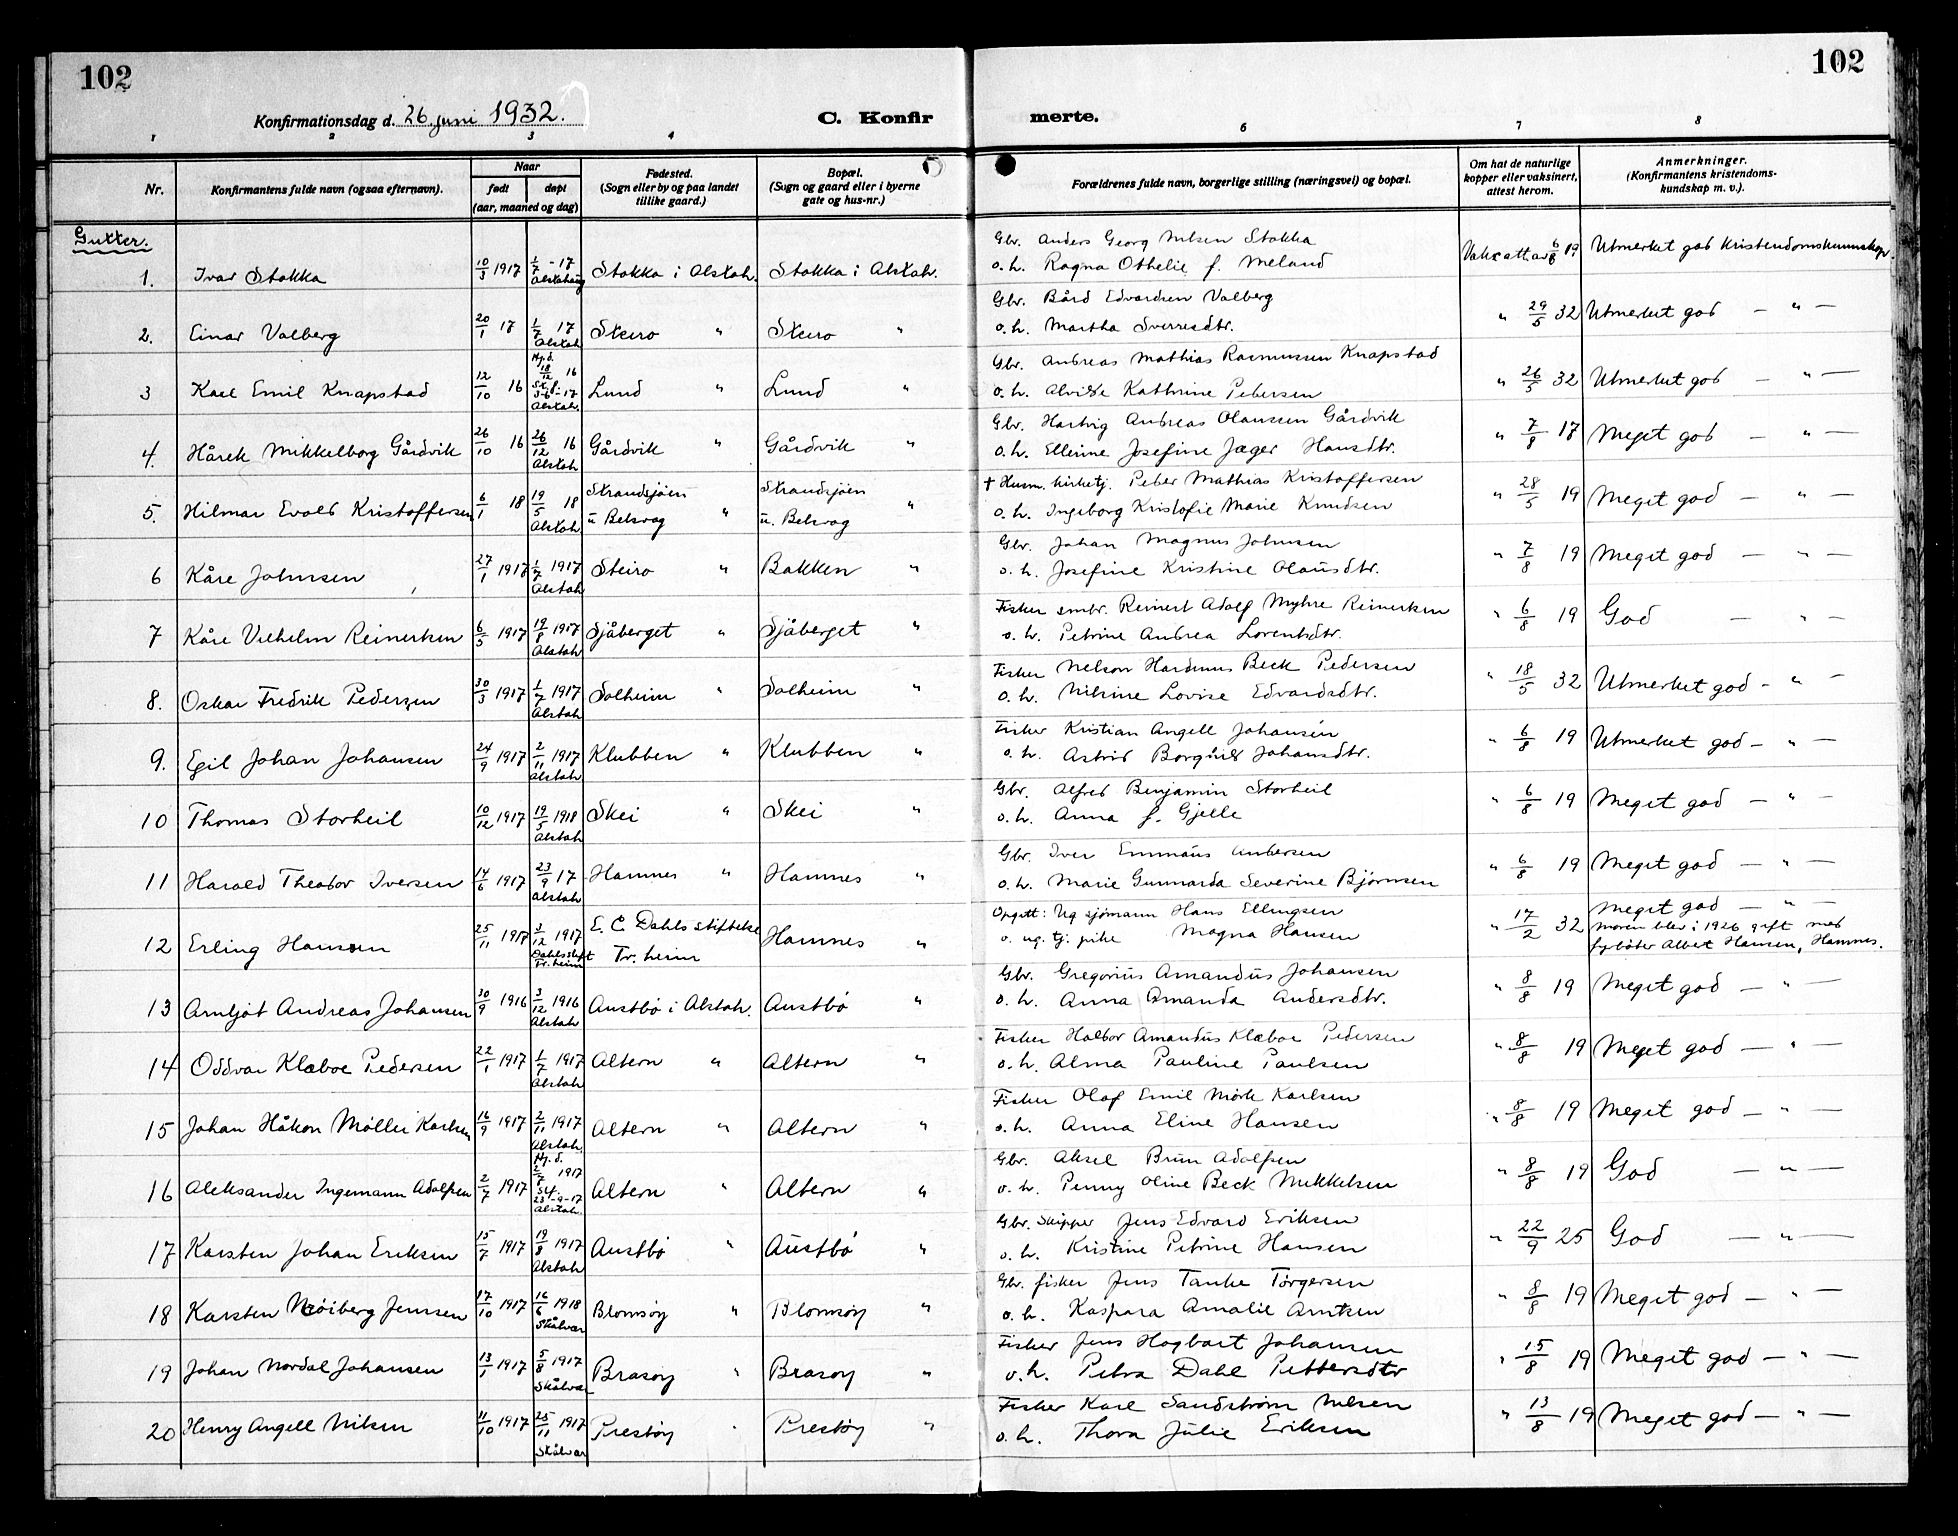 102
102
Konfirmationsdag d. 26. juni 1932.
C. Konfir
merte.
1 2 3 4 6 7 8
Nr. Konfirmantens fulde navn (ogsaa efternavn). Naar født døpt (aar, maaned og dag) Fødested. (Sogn eller by og paa landet tillike gaard.) Bopæl. (Sogn og gaard eller i byerne gate og hus-nr.) Forældrenes fulde navn, borgerlige stilling (næringsvei) og bopæl. Om hat de naturlige kopper eller vaksinert, attest herom. Anmerkninger. (Konfirmantens kristendomskundskap m. v.).
Gutter.
1. Ivar Stokka 10/3 1917 1/7 -17 Alstahaug Stokka i Alstah. Stokka i Alstah. Gbr. Anders Georg Nilsen Stokka Vaks.att. av 6/8 19 Utmerket god Kristendomskunnskap.
o. h. Ragna Othelie f. Meland
2. Einar Valberg 20/1 17 1/7 17 Alstah Steiro " Steiro " Gbr. Bård Edvardsen Valberg " 29/5 32 Utmerket god — " —
o. h. Martha Sverresdtr.
3 Karl Emil Knapstad 12/10 16 Hj.d. 18/12 16 St.f. 3-6-17 Alstah. Lund " Lund " Gbr. Andreas Mathias Rasmussen Knapstad " 26/5 32 Utmerket god — " —
o. h. Alvilde Kathrine Pedersen
4. Hårek Mikkelborg Gårdvik 26/10 16 26/12 16 Alstah Gårdvik " Gårdvik " Gbr. Hartvig Andreas Olaussen Gårdvik " 7/8 17 Meget god — " —
o. h. Ellerine Josefine Jæger Hansdtr.
5. Hilmar Evald Kristoffersen 6/1 18 19/5 18 Alstah Strandsjøen u Belsvog " Strandsjøen u. Belsvog " † Husm. kirketj. Peder Mathias Kristoffersen " 28/5 19 Meget god — " —
o. h. Ingeborg Kristofie Marie Knudsen
6 Kåre Johnsen 27/1 1917 1/7 1917 Alstah Steiro " Bakken " Gbr. Johan Magnus Johnsen " 7/8 19 Meget god — " —
o. h. Josefine Kristine Olausdtr.
7 Kåre Vilhelm Reinertsen 6/5 1917 19/8 1917 Alstah Sjåberget " Sjåberget " Fisker småbr. Reinert Adolf Myhre Reinertsen " 6/8 19 God — " —
o. h. Petrine Andrea Lorentsdtr.
8. Oskar Fredrik Pedersen 30/3 1917 1/7 1917 Alstah Solheim " Solheim " Fisker Nelson Hardmus Beck Pedersen " 18/5 32 Utmerket god — " —
o. h. Nilsine Lovise Edvardsdtr.
9. Egil Johan Johansen 24/9 1917 2/11 1917 Alstah Klubben " Klubben " Fisker Kristian Angell Johansen " 6/8 19 Utmerket god — " —
o. h. Astrid Borghild Johansdtr.
10 Thomas Storheil 10/12 1917 19/5 1918 Alstah Skei " Skei " Gbr. Alfred Benjamin Storheil " 6/8 19 Meget god — " —
o. h. Anna f. Gjelle
11 Harald Theodor Iversen 14/6 1917 23/9 17 Alstah Hamnes " Hamnes " Gbr. Iver Emmaus Andersen " 6/8 19 Meget god — " —
o. h. Marie Gunnarda Severine Bjørnsen
12 Erling Hansen 25/11 1917 3/12 1917 Dahls stift Tr.heim E. C. Dahls stiftelse Tr. heim Hamnes " Opgitt: Ug sjømann Hans Ellingsen " 17/2 32 Meget god — " —
o. ug. tj. pike Magna Hansen Moren blev i 1926 gift med fyrbøter Albert Hansen, Hamnes.
13 Arnljot Andreas Johansen 30/9 1916 3/12 1916 Alstah Austbø i Alstah. Austbø " Gbr. Gregorius Amandus Johansen " 8/8 19 Meget god — " —
o. h. Anna Amanda Andersdtr.
14 Oddvar Klæboe Pedersen 22/1 1917 1/7 1917 Alstah Altern " Altern " Fisker Haldor Amandus Klæboe Pedersen " 8/8 19 Meget god — " —
o. h. Alma Pauline Paulsen
15 Johan Håkon Møller Karlsen 16/9 1917 2/11 1917 Alstah Altern " Altern " Fisker Olaf Emil Mørk Karlsen " 8/8 19 Meget god — " —
o. h. Anna Eline Hansen
16 Aleksander Ingemann Adolfsen 2/7 1917 Hj.d. 2/7 1917 St.f. 23-9-17 Alstah. Altern " Altern " Gbr. Aksel Brun Adolfsen " 8/8 19 God — " —
o. h. Penny Oline Beck Mikkelsen
17 Karsten Johan Eriksen 15/7 1917 19/8 1917 Alstah Austbø " Austbø " Gbr. Skipper Jens Edvard Eriksen " 22/9 25 God — " —
o. h. Kristine Petrine Hansen
18 Karsten Jenssen 17/10 1917 16/6 1918 Skålvær Blomsøy " Blomsøy " Gbr. fisker Jens Tanke Torgersen " 8/8 19 Meget god — " —
o. h. Kaspara Amalie Arntsen
19 Johan Nordal Johansen 13/1 1917 5/8 1917 Skålvær Brasøy " Brasøy " Fisker Jens Hagbart Johansen " 15/8 19 Meget god — " —
o. h. Petra Dahl Pettersdtr
20 Henry Angell Nilsen 11/10 1917 25/11 1917 Skålvær Prestøy " Prestøy " Fisker Karl Sandstrøm Nilsen " 13/8 19 Meget god — " —
o. h. Thora Julie Eriksen